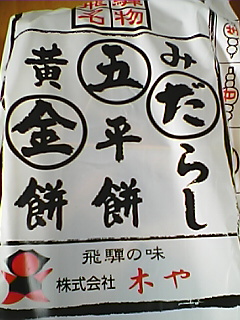 飛騨
名物
みだらし
五平餅
黄金餅
飛騨の味
株式会社 木や